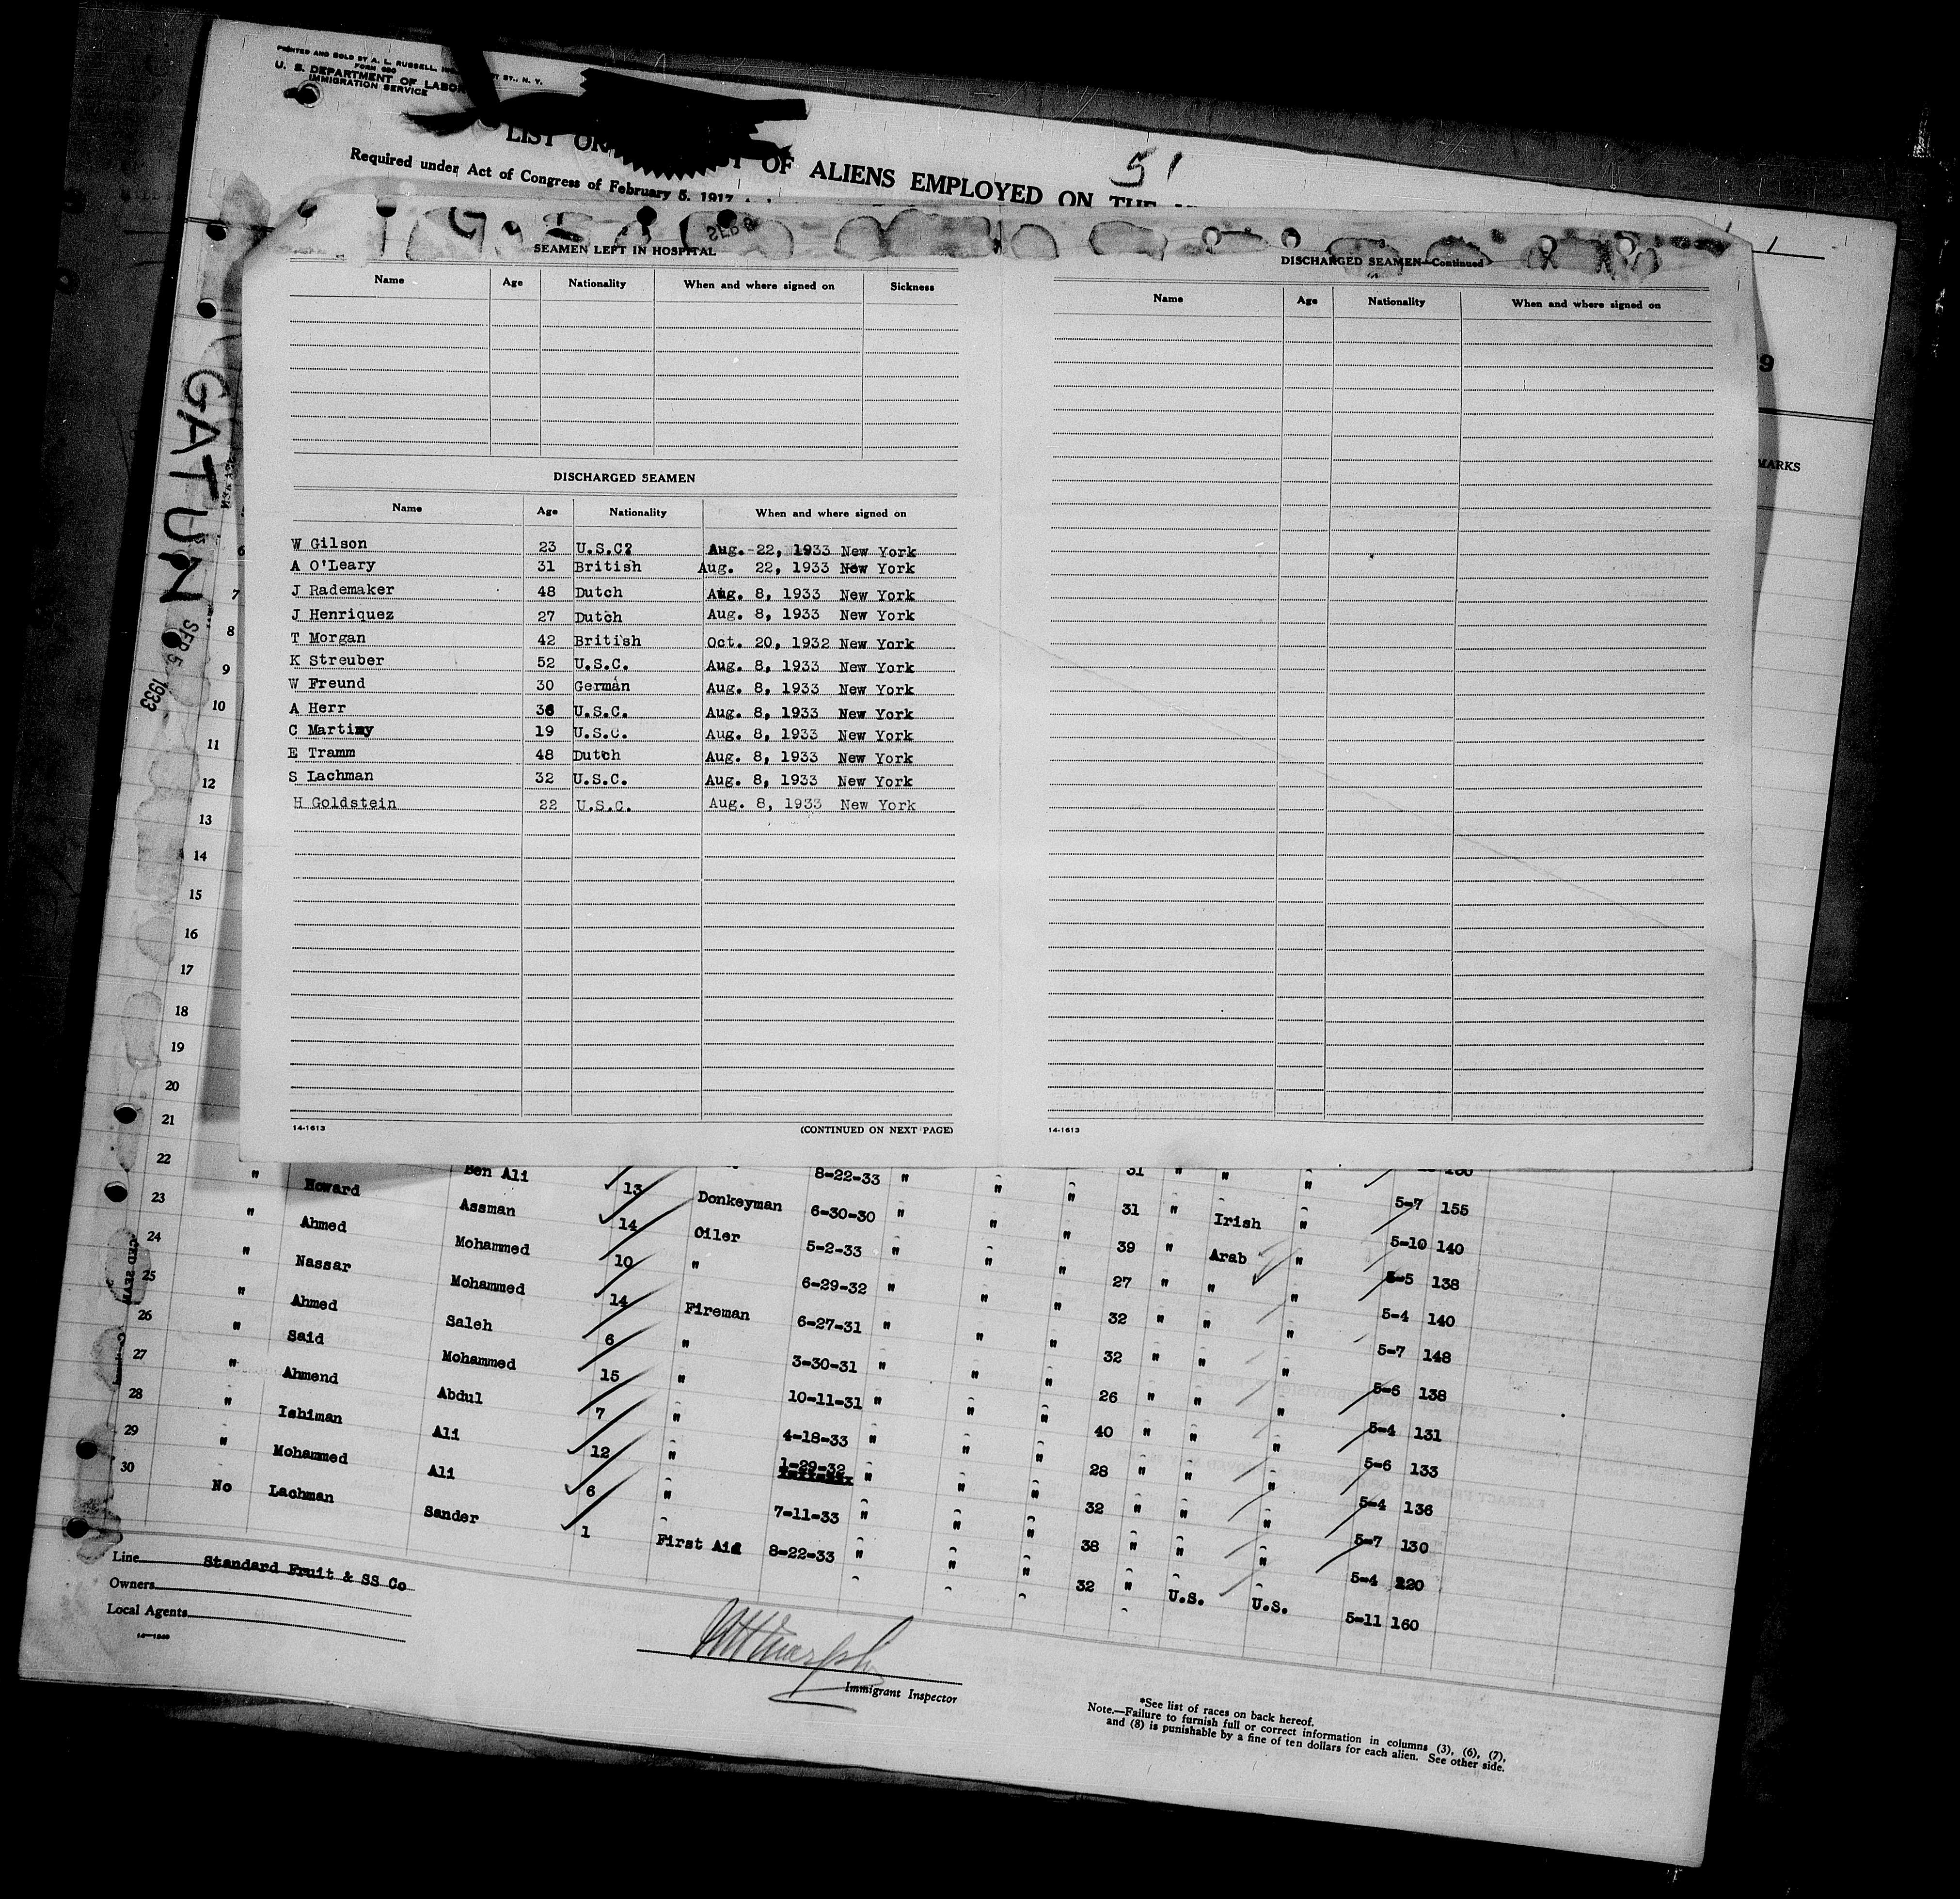 PRINTED AND SOLD BY A. L. RUSSELL, ST., N. Y.
FORM 680
U. S. DEPARTMENT OF LABOR
IMMIGRATION SERVICE
LIST OR OF ALIENS EMPLOYED ON THE
51
Required under Act of Congress of February 5, 1917
GATUN
SEP 5 1933
9
MARKS
SEAMEN LEFT IN HOSPITAL
Name Age Nationality When and where signed on Sickness
DISCHARGED SEAMEN
Name Age Nationality When and where signed on
W Gilson 23 U.S.C? Aug. 22, 1933 New York
A O'Leary 31 British Aug. 22, 1933 New York
J Rademaker 48 Dutch Aug. 8, 1933 New York
J Henriquez 27 Dutch Aug. 8, 1933 New York
T Morgan 42 British Oct. 20, 1932 New York
K Streuber 52 U.S.C. Aug. 8, 1933 New York
W Freund 30 German Aug. 8, 1933 New York
A Herr 36 U.S.C. Aug. 8, 1933 New York
C Martimy 19 U.S.C. Aug. 8, 1933 New York
E Tramm 48 Dutch Aug. 8, 1933 New York
S Lachman 32 U.S.C. Aug. 8, 1933 New York
H Goldstein 22 U.S.C. Aug. 8, 1933 New York
14-1613 (CONTINUED ON NEXT PAGE)
DISCHARGED SEAMEN—Continued
Name Age Nationality When and where signed on
14-1613
6
7
8
9
10
11
12
13
14
15
16
17
18
19
20
21
22 Ben Ali 8-22-33 " " " 31 " " "
23 " Howard Assman 13 Donkeyman 6-30-30 " " " 31 " Irish " 5-7 155
24 " Ahmed Mohammed 14 Oiler 5-2-33 " " " 39 " Arab " 5-10 140
25 " Nassar Mohammed 10 " 6-29-32 " " " 27 " " " 5-5 138
26 " Ahmed Saleh 14 Fireman 6-27-31 " " " 32 " " " 5-4 140
27 " Said Mohammed 6 " 3-30-31 " " " 32 " " " 5-7 148
28 " Ahmend Abdul 15 " 10-11-31 " " " 26 " " " 5-6 138
29 " Ishiman Ali 7 " 4-18-33 " " " 40 " " " 5-4 131
30 " Mohammed Ali 12 " 1-29-32 " " " 28 " " " 5-6 133
No Lachman Sander 6 " 7-11-33 " " " 32 " " " 5-4 136
1 First Aid 8-22-33 " " " 38 " " " 5-7 130
32 " U.S. U.S. 5-4 220
5-11 160
Line Standard Fruit & SS Co
Owners
Local Agents
Immigrant Inspector
*See list of races on back hereof.
Note.—Failure to furnish full or correct information in columns (3), (6), (7),
and (8) is punishable by a fine of ten dollars for each alien. See other side.